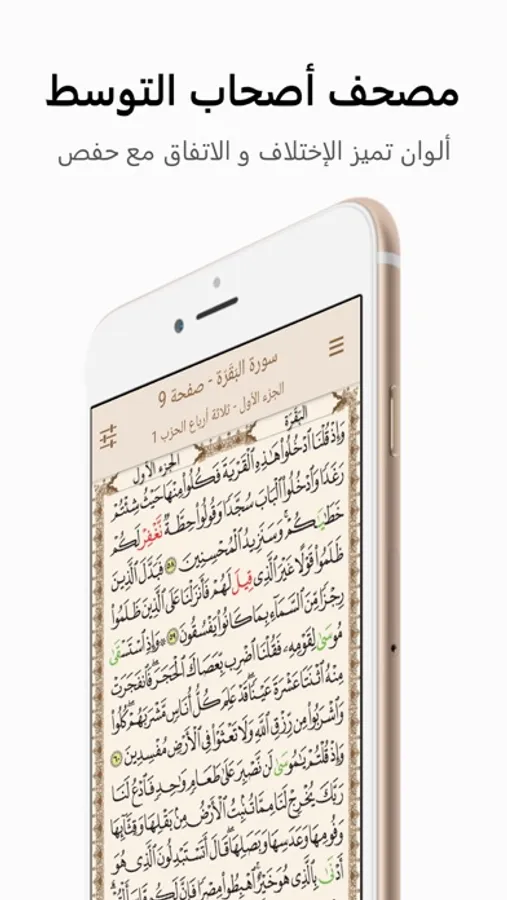 مصحف أصحاب التوسط
ألوان تميز الإختلاف و الاتفاق مع حفص
سورة البَقَرَة - صفحة 9
الجزء الأول - ثلاثة أرباع الحزب 1
البَقَرَة
الجزء الأول
وَإِذْ قُلْنَا ٱدْخُلُوا۟ هَٰذِهِ ٱلْقَرْيَةَ فَكُلُوا۟ مِنْهَا حَيْثُ شِئْتُمْ
رَغَدًا وَٱدْخُلُوا۟ ٱلْبَابَ سُجَّدًا وَقُولُوا۟ حِطَّةٌ نَّغْفِرْ لَكُمْ
خَطَٰيَٰكُمْ وَسَنَزِيدُ ٱلْمُحْسِنِينَ ٥٨ فَبَدَّلَ ٱلَّذِينَ
ظَلَمُوا۟ قَوْلًا غَيْرَ ٱلَّذِى قِيلَ لَهُمْ فَأَنزَلْنَا عَلَى ٱلَّذِينَ ظَلَمُوا۟
رِجْزًا مِّنَ ٱلسَّمَآءِ بِمَا كَانُوا۟ يَفْسُقُونَ ٥٩ ۞ وَإِذِ ٱسْتَسْقَىٰ
مُوسَىٰ لِقَوْمِهِۦ فَقُلْنَا ٱضْرِب بِّعَصَاكَ ٱلْحَجَرَ فَٱنفَجَرَتْ
مِنْهُ ٱثْنَتَا عَشْرَةَ عَيْنًا قَدْ عَلِمَ كُلُّ أُنَاسٍ مَّشْرَبَهُمْ كُلُوا۟
وَٱشْرَبُوا۟ مِن رِّزْقِ ٱللَّهِ وَلَا تَعْثَوْا۟ فِى ٱلْأَرْضِ مُفْسِدِينَ ٦٠
وَإِذْ قُلْتُمْ يَٰمُوسَىٰ لَن نَّصْبِرَ عَلَىٰ طَعَامٍ وَٰحِدٍ فَٱدْعُ لَنَا
رَبَّكَ يُخْرِجْ لَنَا مِمَّا تُنۢبِتُ ٱلْأَرْضُ مِنۢ بَقْلِهَا وَقِثَّآئِهَا
وَفُومِهَا وَعَدَسِهَا وَبَصَلِهَا قَالَ أَتَسْتَبْدِلُونَ ٱلَّذِى هُوَ
أَدْنَىٰ بِٱلَّذِى هُوَ خَيْرٌ ٱهْبِطُوا۟ مِصْرًا فَإِنَّ لَكُم